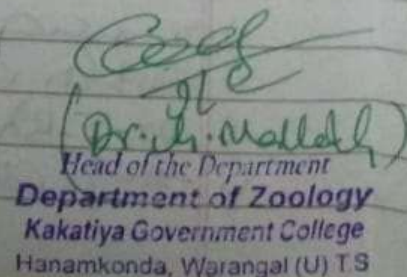 (Dr. Mallah)
Head of the Department
Department of Zoology
Kakatiya Government College
Hanamkonda, Warangal (U) T.S